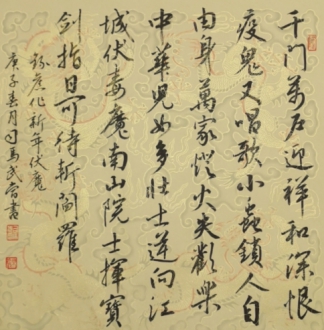 千门万户迎祥和深恨
疫鬼又唱歌小虫锁人自
由身万家灯火失欢乐
中华儿女多壮士逆向江
城伏毒魔南山院士挥宝
剑指日可待斩阎罗
新年伏魔
庚子春月司马武当书